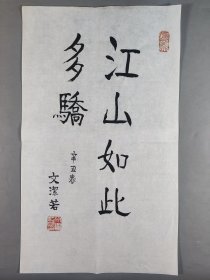 江山如此
多驕
辛丑春
文潔若